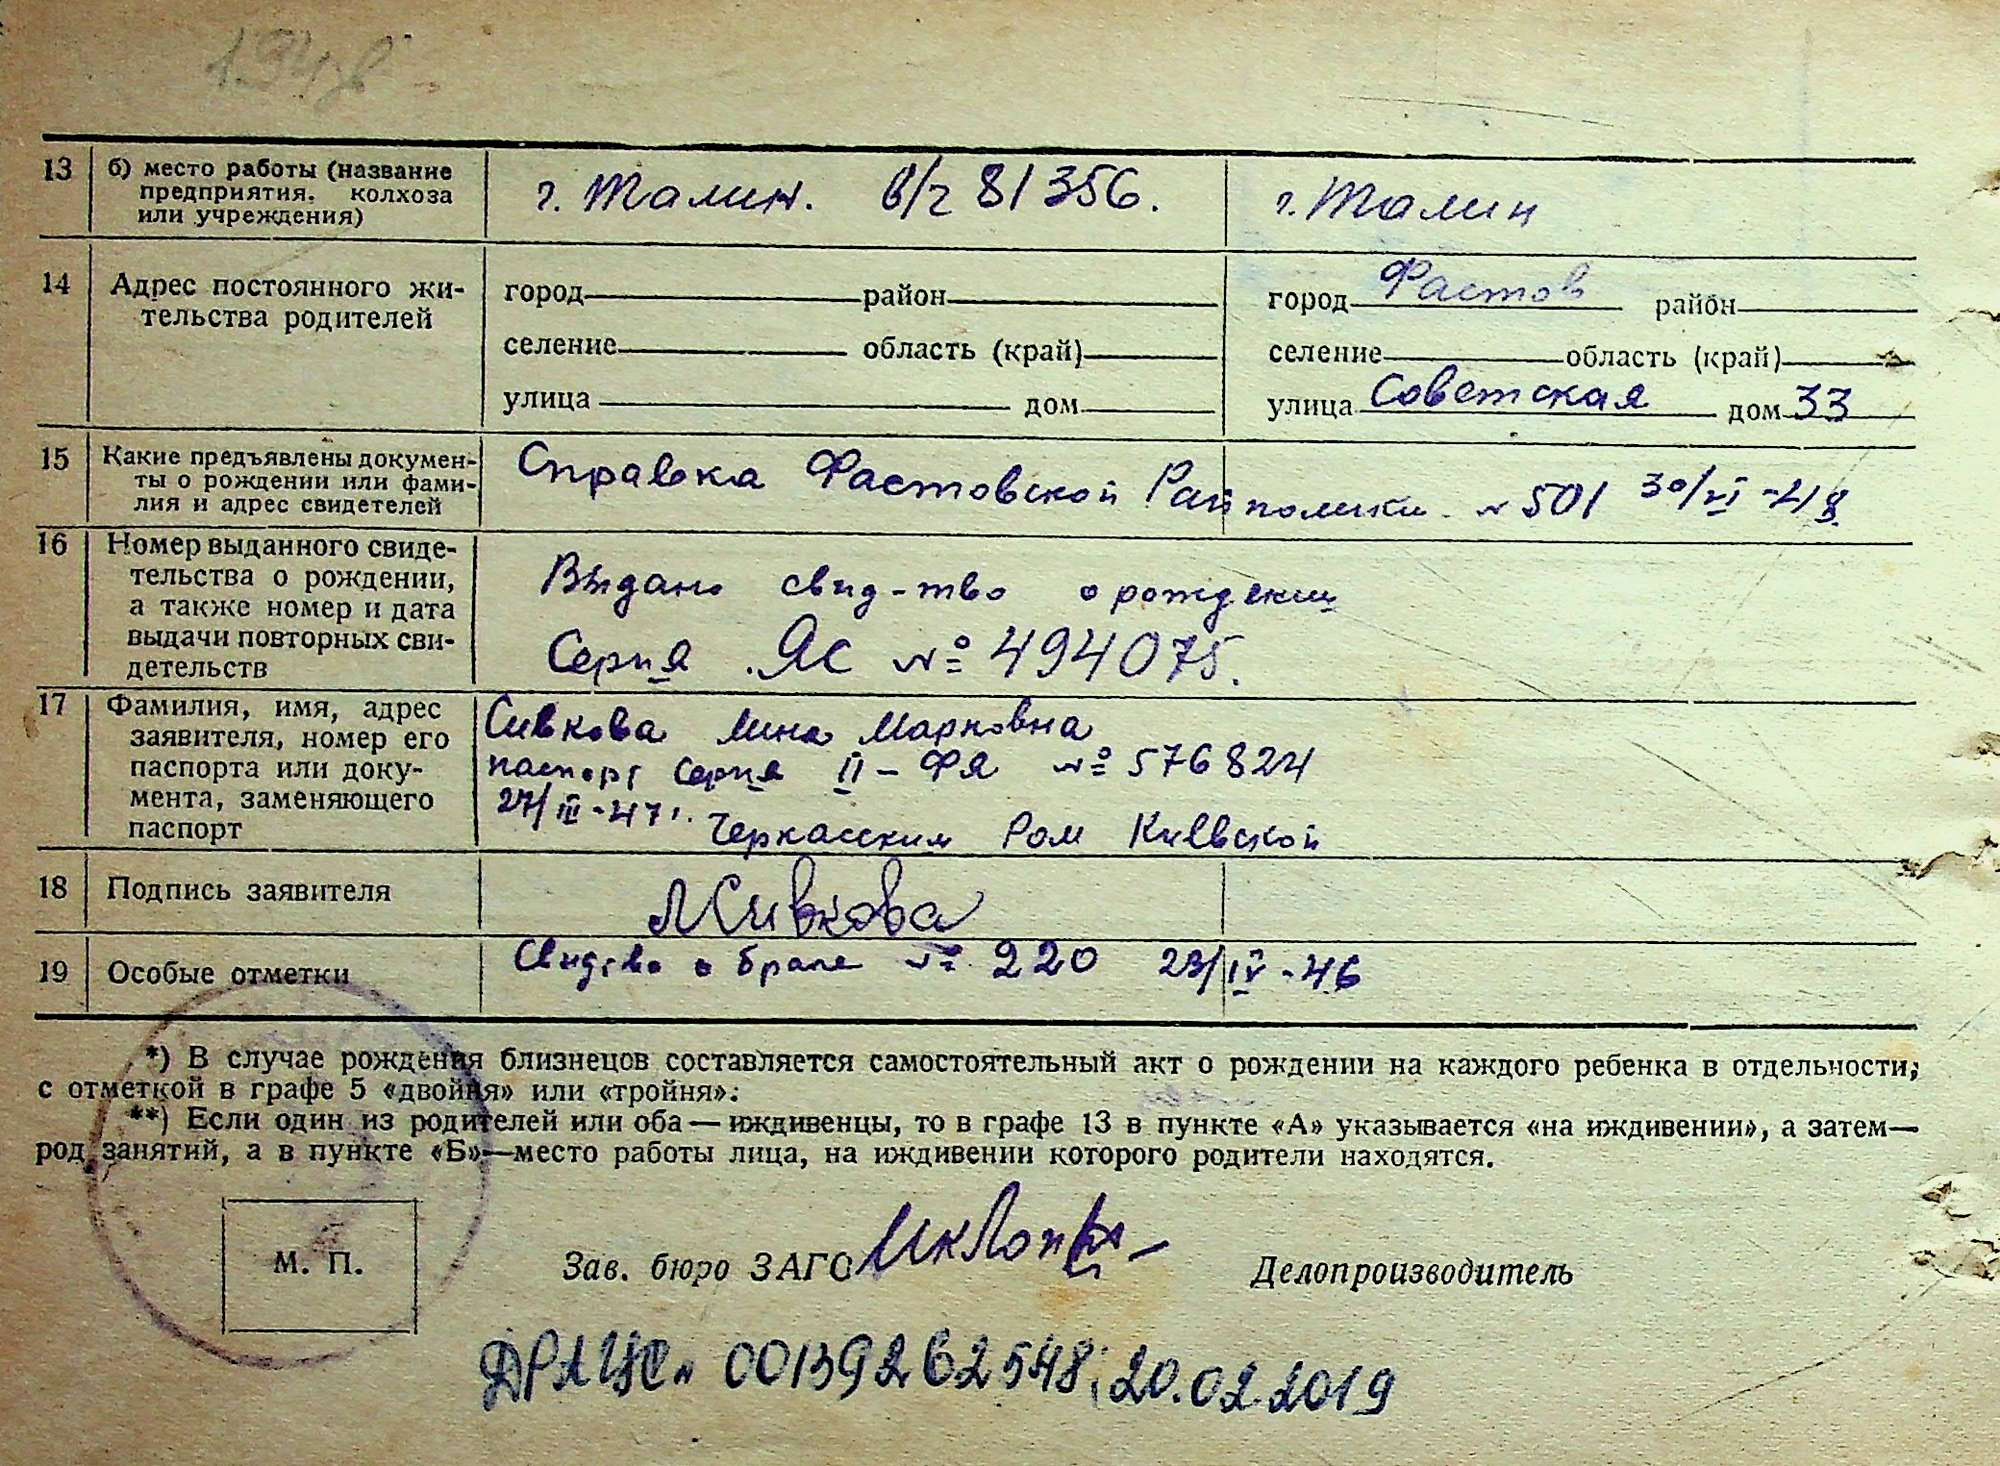 13 б) место работы (название предприятия, колхоза или учреждения)
г. Талин. в/ч 81356.
г. Талин
14 Адрес постоянного жи-
тельства родителей
город район
селение область (край)
улица дом
город Фастов район
селение область (край)
улица Советская дом 33
15 Какие предъявлены докумен-
ты о рождении или фами-
лия и адрес свидетелей
Справка Фастовской Райполикли. № 501 30/VI-48
16 Номер выданного свиде-
тельства о рождении,
а также номер и дата
выдачи повторных сви-
детельств
Выдано свид-тво о рождении
Серия ЯС № 494075.
17 Фамилия, имя, адрес
заявителя, номер его
паспорта или доку-
мента, заменяющего
паспорт
Сивкова Лина Марковна
паспорт серия II-ФЯ № 576824
27/III-47г. Черкасским Ром Киевской
18 Подпись заявителя
ЛСивкова
19 Особые отметки
Свидтво о браке № 220 23/IV-46
*) В случае рождения близнецов составляется самостоятельный акт о рождении на каждого ребенка в отдельности,
с отметкой в графе 5 «двойня» или «тройня».
**) Если один из родителей или оба — иждивенцы, то в графе 13 в пункте «А» указывается «на иждивении», а затем—
род занятий, а в пункте «Б»—место работы лица, на иждивении которого родители находятся.
М. П.
Зав. бюро ЗАГС
Делопроизводитель
ДРАЦСГ 00139262548; 20.02.2019